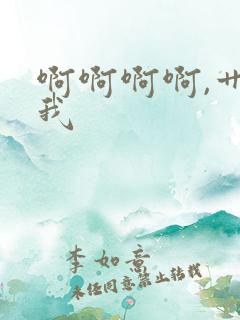 啊啊啊啊,艹
我
李如意
未经同意禁止转载